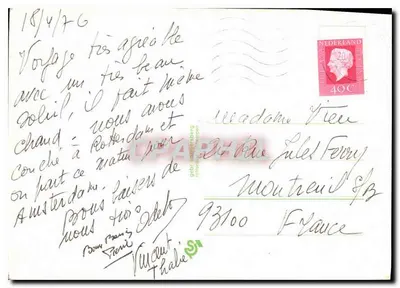 18/4/76
Voyage très agréable
avec un très beau
soleil, il fait même
chaud - nous avons
couché à Rotterdam et
on part ce matin pour
Amsterdam.
Bons baisers de
nous trois Odette
Bons Baisers
Pierre
Vincent
Thalie
NEDERLAND
40c
Madame Vieu
Rue Jules Ferry
Montreuil S/B
93100 France